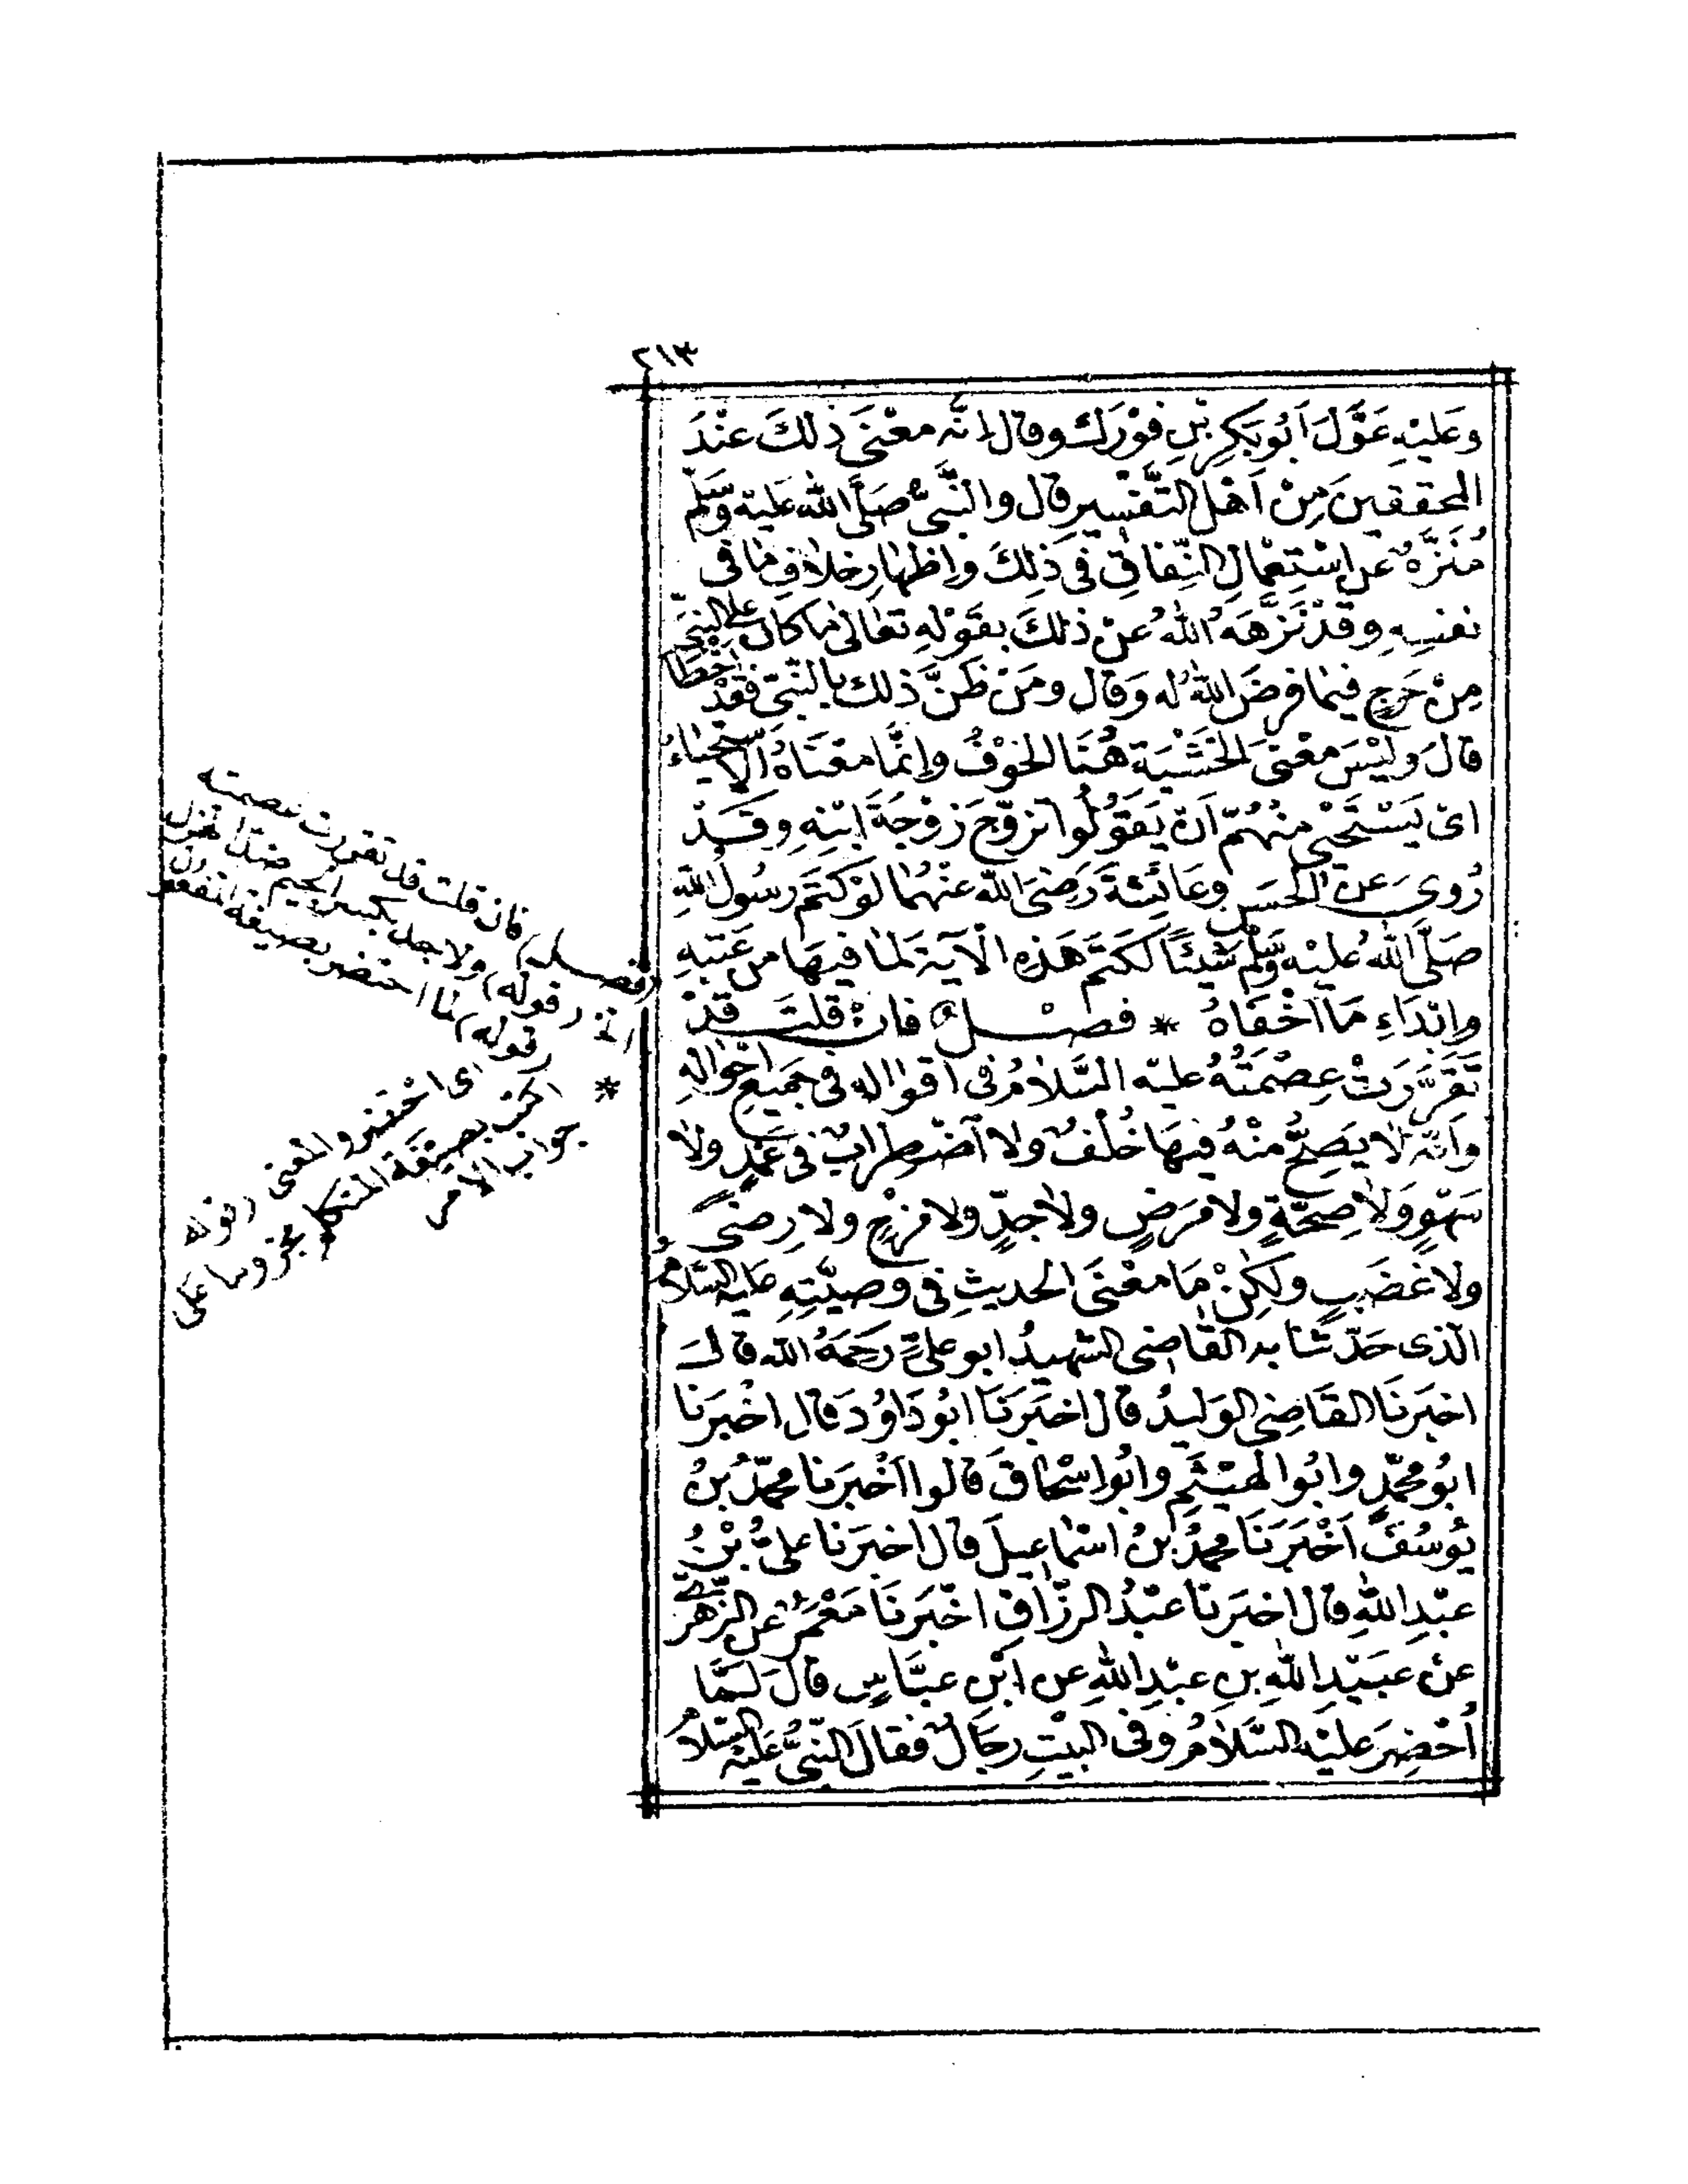 ٢١٣
وَعَلَيْهِ عَوَّلَ اَبُوبَكِرِ بْنِ فَوْرَك وقال اِنَّه مَعْنَى ذٰلِكَ عِنْدَ
المحققينَ مِنْ اَهْلِ التَّفْسِيرِ قال والنَّبِىُّ صَلَّى اللّٰهُ عَلَيْهِ وَسَلَّم
مُنَزَّهٌ عَنِ اسْتِعْمَالِ النِّفَاقِ فِى ذٰلِكَ وَاِظْهَارِ خِلَافِ مَا فى
نفسِهِ وقَدْ نَزَّهَهُ اللّٰهُ عَنْ ذٰلِكَ بِقَوْلِهِ تعَالىٰ مَا كَانَ على النبىّ
مِنْ حَرَجٍ فيمَا فرضَ اللّٰهُ له وَقال ومَنْ ظَنَّ ذٰلك بالنّبىّ فقَدْ اخْطَأ
قالَ وَلَيْسَ مَعْنَى الخَشْيَةِ هُنَا الخَوْفُ وإنَّمَا مَعْنَاهُ الاسْتِحْيَاءُ
اىْ يَسْتَحْيِى مِنْهُمْ اَنْ يَقُولُوا تَزَوَّجَ زَوْجَةَ ابْنِهِ وقَدْ
رُوِىَ عن الحَسَنِ وعَائِشَةَ رَضِىَ اللّٰه عَنْهُمَا لَوْ كَتَمَ رسُولُ اللّٰهِ
صَلَّى اللّٰهُ عَلَيْهِ وَسَلَّمَ شَيْئًا لَكَتَمَ هَذِهِ الْآيَةَ لِمَا فيهَا من عَتْبِهِ
وإبْدَاءِ مَا اَخْفَاهُ * فصْل فانْ قلتَ قَدْ
تَقَرَّرَتْ عِصْمَتُهُ عليْه السَّلَامُ فى اقوَاله فى جَميعِ احْوَالِهِ
وَاَنَّهُ لَا يَصِحُّ مِنْهُ فيهَا خُلْفٌ ولا اضْطِرابٌ فى عَمْدٍ ولَا
سَهْوٍ وَلَا صِحَّةٍ ولا مَرَضٍ ولَا جِدٍّ ولا مزْحٍ ولا رِضًى
ولا غَضَبٍ ولَكِنْ مَا مَعْنَى الحَديثِ فى وصِيَّتِهِ عليه السّلامُ
الّذى حَدَّثنا به القَاضِى الشهيدُ ابو عَلىٍّ رَحِمَهُ الله قالَ
اخبَرنَا القَاضِى الوَليدُ قال اخبَرَنَا ابُو دَاوُدَ قال اخْبَرَنَا
ابُو مُحمّدٍ وابُو الهَيْثَمِ وابُو اِسْحَاقَ قالوا اَخْبَرنا محمّدُ بنُ
يُوسُفَ اَخْبَرَنَا محمدُ بنُ اسْمَاعِيلَ قال اخبَرَنا عَلىُّ بْنُ
عَبْدِ اللّٰهِ قال اخبَرنا عَبْدُ الرزَّاقِ اخْبَرَنَا مَعْمَرٌ عَنِ الزُّهْرِىّ
عنْ عبَيْدِ اللّٰهِ بنِ عبْدِ اللّٰهِ عن ابْنِ عبَّاسٍ قالَ لَمَّا
اُحْضِرَ عَلَيْهِ السَّلَامُ وَفى البَيْتِ رِجَالٌ فقالَ النَّبِىُّ عَلَيْهِ السّلَامُ
(فصل) فان قلت قد تقررت عصمته
الخ (قوله) ولا جد بكسر الجيم ضد الهزل
(قوله) لما احتضر بصيغة المفعول
اى احْتَضِر والمعنى (قوله
* اكتب بصيغة المتكلم مجزوما على
جواب الامر